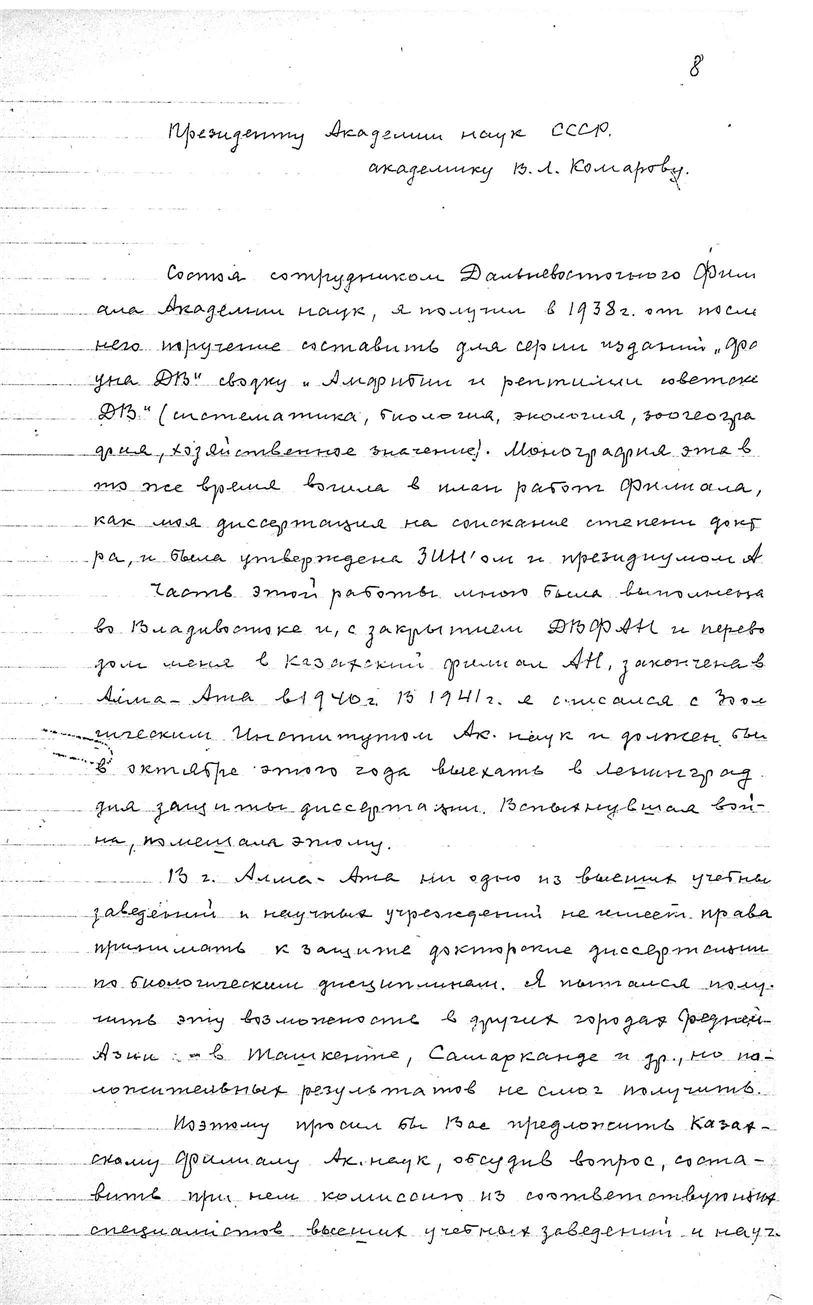 8
Президенту Академии наук СССР.
академику В.Л. Комарову.
Состоя сотрудником Дальневосточного Фили
ала Академии наук, я получил в 1938 г. от после
него поручение составить для серии изданий „Фа
уна ДВ" сводку „Амфибии и рептилии советск
ДВ." (систематика, биология, экология, зоогеогра
фия, хозяйственное значение). Монография эта в
то же время вошла в план работ Филиала,
как моя диссертация на соискание степени докт
ра, и была утверждена ЗИН'ом и президиумом А
Часть этой работы мною была выполнена
во Владивостоке и, с закрытием ДВФАН и перево
дом меня в Казахский филиал АН, закончена в
Алма-Ата в 1940 г. В 1941 г. я списался с Зоол
гическим Институтом Ак. наук и должен был
в октябре этого года выехать в Ленинград
для защиты диссертации. Вспыхнувшая вой-
на, помешала этому.
В г. Алма-Ата ни одно из высших учебны
заведений и научных учреждений не имеет права
принимать к защите докторские диссертации
по биологическим дисциплинам. Я пытался полу-
чить эту возможность в других городах Средней
Азии: - в Ташкенте, Самарканде и др., но по-
ложительных результатов не смог получить.
Поэтому просил бы Вас предложить Казах-
скому Филиалу Ак. наук, обсудив вопрос, соста-
вить при нем комиссию из соответствующих
специалистов высших учебных заведений и науч.